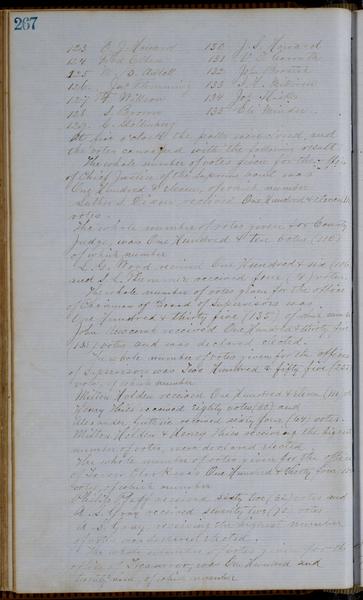 267
123 J. Howard 130 J. S. Howard
124 131
125 132 Jos
126 133 S.
127 Wilson 134 Jos Hicks
128 S. Brown 135
129 G.
At five o'clock the polls were closed, and
the votes canvassed with the following result
The whole number of votes given for the office
of Chief Justice of the Supreme Court was
One Hundred & eleven, of which number
Luther S. Dixon received One Hundred & eleven
votes.
The whole number of votes given for County
Judge, was One Hundred & ten votes (110)
of which number
L. G. Wood received One Hundred & six (106)
and S. L. received four (4) votes.
The whole number of votes given for the office
of Chairman of Board of Supervisors was
One Hundred & thirty five (135) of which number
John received One Hundred & thirty five
135 votes and was declared elected.
The whole number of votes given for the office
of Supervisors was Two Hundred & fifty five (255)
votes, of which number
Milton Holden received One Hundred & eleven (111)
Henry received eighty votes (80) and
Alexander received sixty four (64) votes.
Milton Holden & Henry receiving the highest
number of votes were declared elected
The whole number of votes given for the office
of Town Clerk was One Hundred & thirty four
votes, of which number
Philip Pfaff received sixty two (62) votes and
A. S. Gray received seventy two (72) votes
A. S. Gray receiving the highest number
of votes was declared elected.
The whole number of votes given for the
office of Treasurer, was One Hundred and
of which number